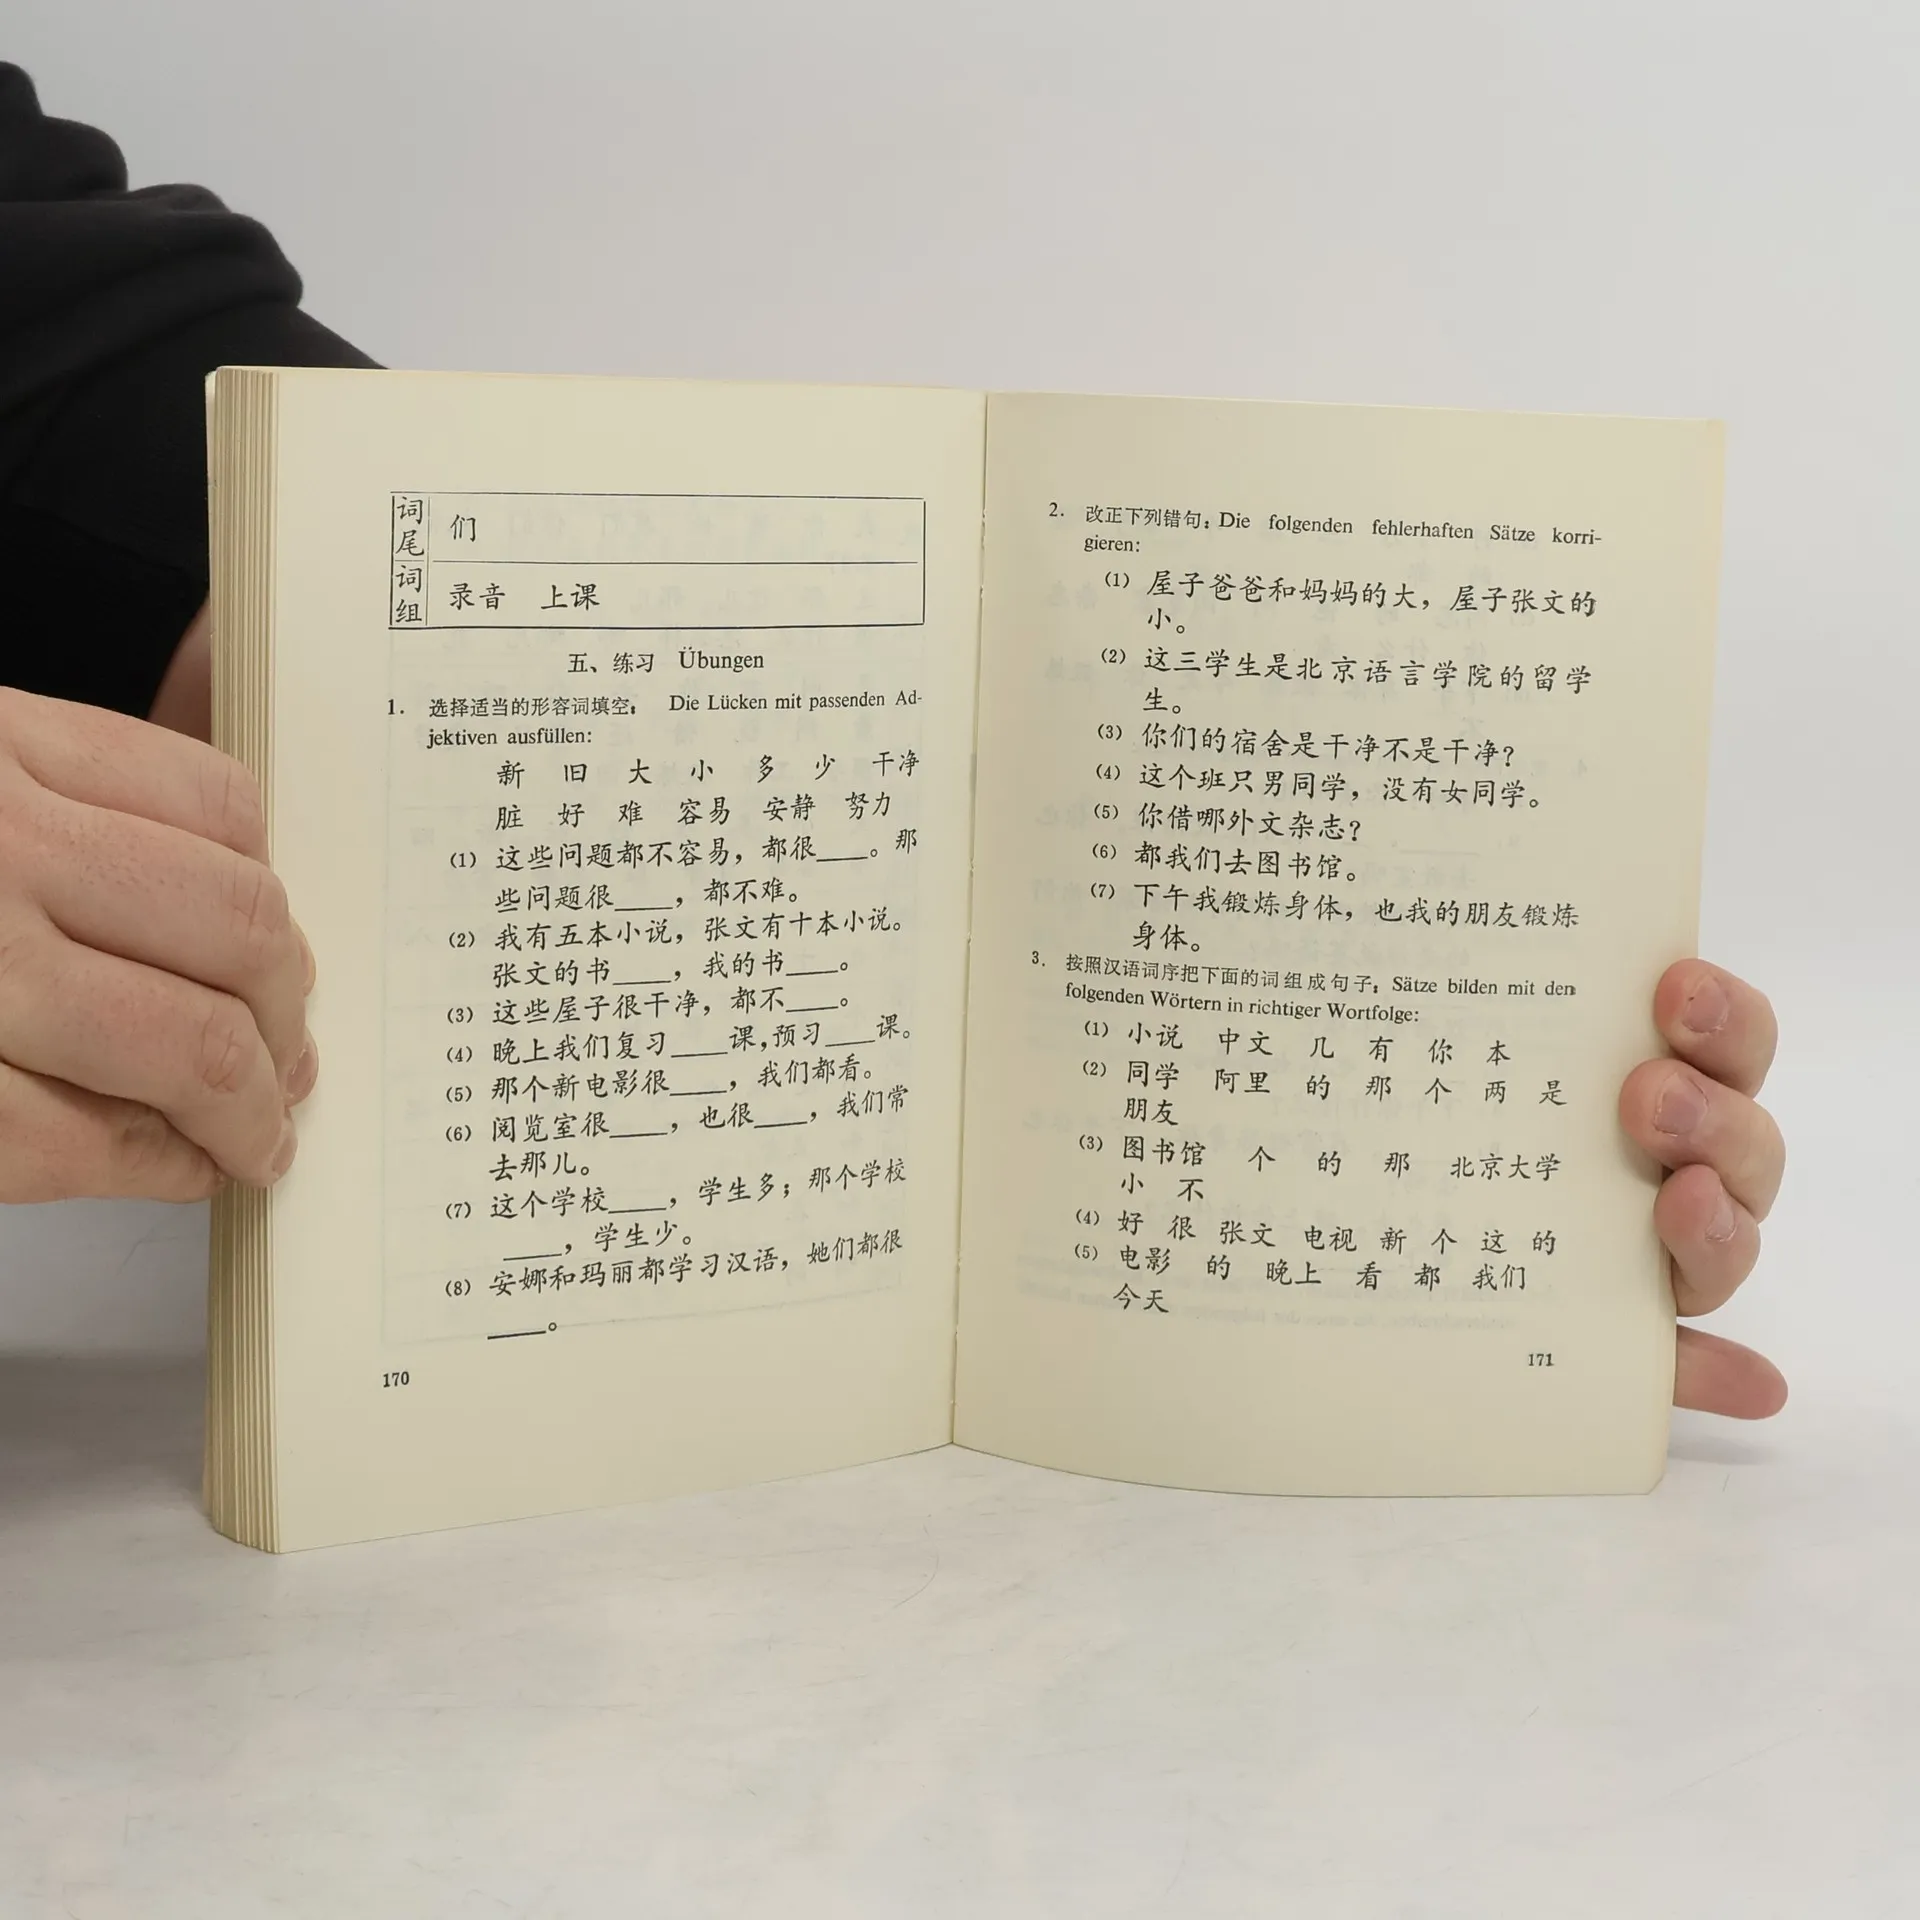 词尾 们
词组 录音 上课
五、练习 Übungen
1. 选择适当的形容词填空： Die Lücken mit passenden Ad-
jektiven ausfüllen:
新 旧 大 小 多 少 干净
脏 好 难 容易 安静 努力
(1) 这些问题都不容易，都很____。那
些问题很____，都不难。
(2) 我有五本小说，张文有十本小说。
张文的书____，我的书____。
(3) 这些屋子很干净，都不____。
(4) 晚上我们复习____课，预习____课。
(5) 那个新电影很____，我们都看。
(6) 阅览室很____，也很____，我们常
去那儿。
(7) 这个学校____，学生多；那个学校
____，学生少。
(8) 安娜和玛丽都学习汉语，她们都很
____。
170
2. 改正下列错句：Die folgenden fehlerhaften Sätze korri-
gieren:
(1) 屋子爸爸和妈妈的大，屋子张文的
小。
(2) 这三学生是北京语言学院的留学
生。
(3) 你们的宿舍是干净不是干净？
(4) 这个班只男同学，没有女同学。
(5) 你借哪外文杂志？
(6) 都我们去图书馆。
(7) 下午我锻炼身体，也我的朋友锻炼
身体。
3. 按照汉语词序把下面的词组成句子：Sätze bilden mit den
folgenden Wörtern in richtiger Wortfolge:
(1) 小说 中文 几 有 你 本
(2) 同学 阿里 的 那 个 两 是
朋友
(3) 图书馆 个 的 那 北京大学
小 不
(4) 好 很 张文 电视 新 个 这 的
(5) 电影 的 晚上 看 都 我们
今天
171